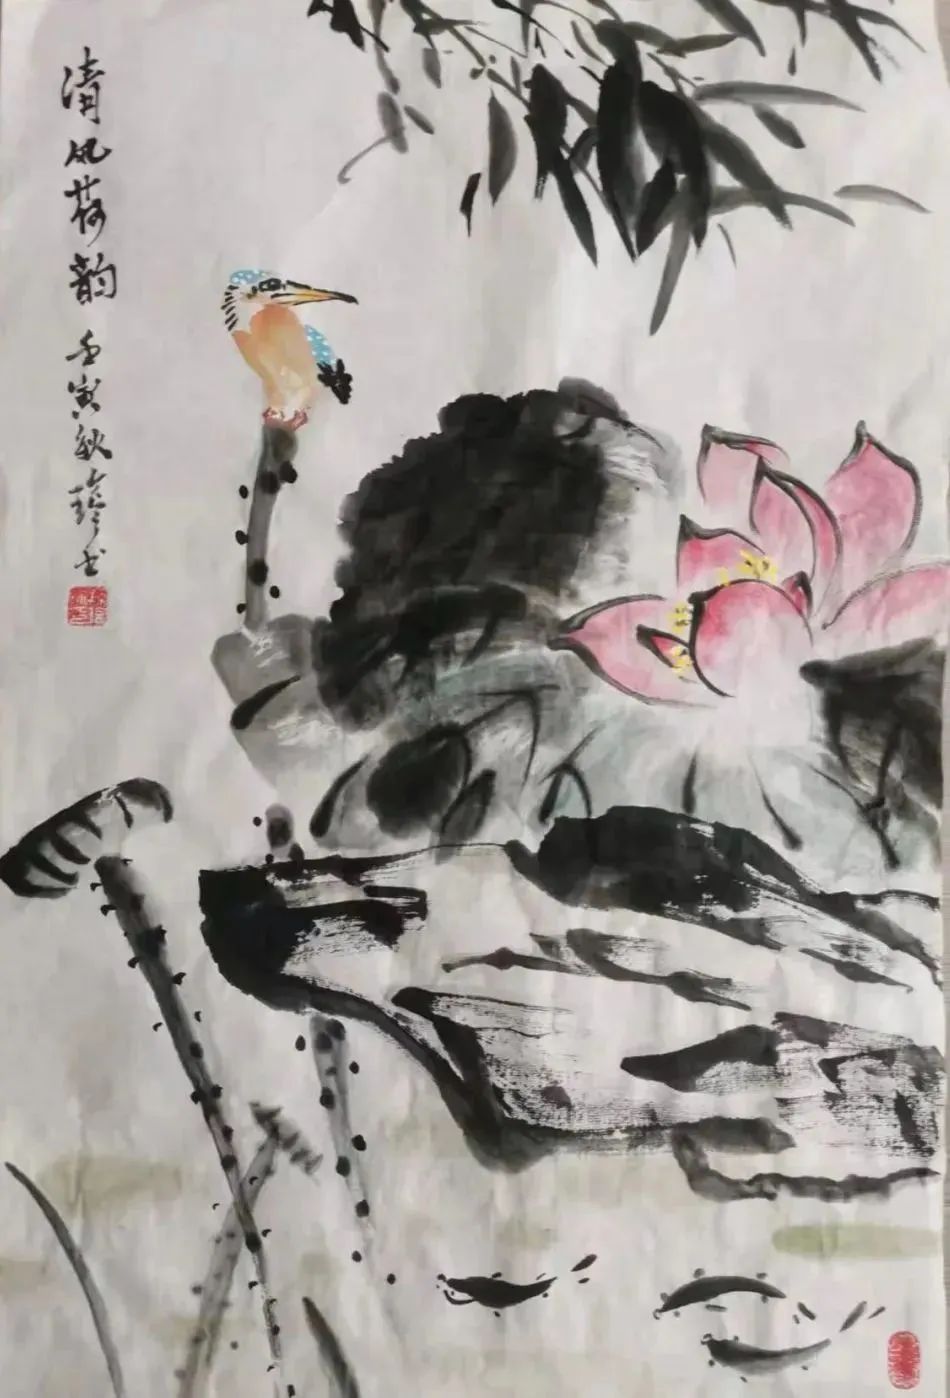 清风荷韵
壬寅秋玲书